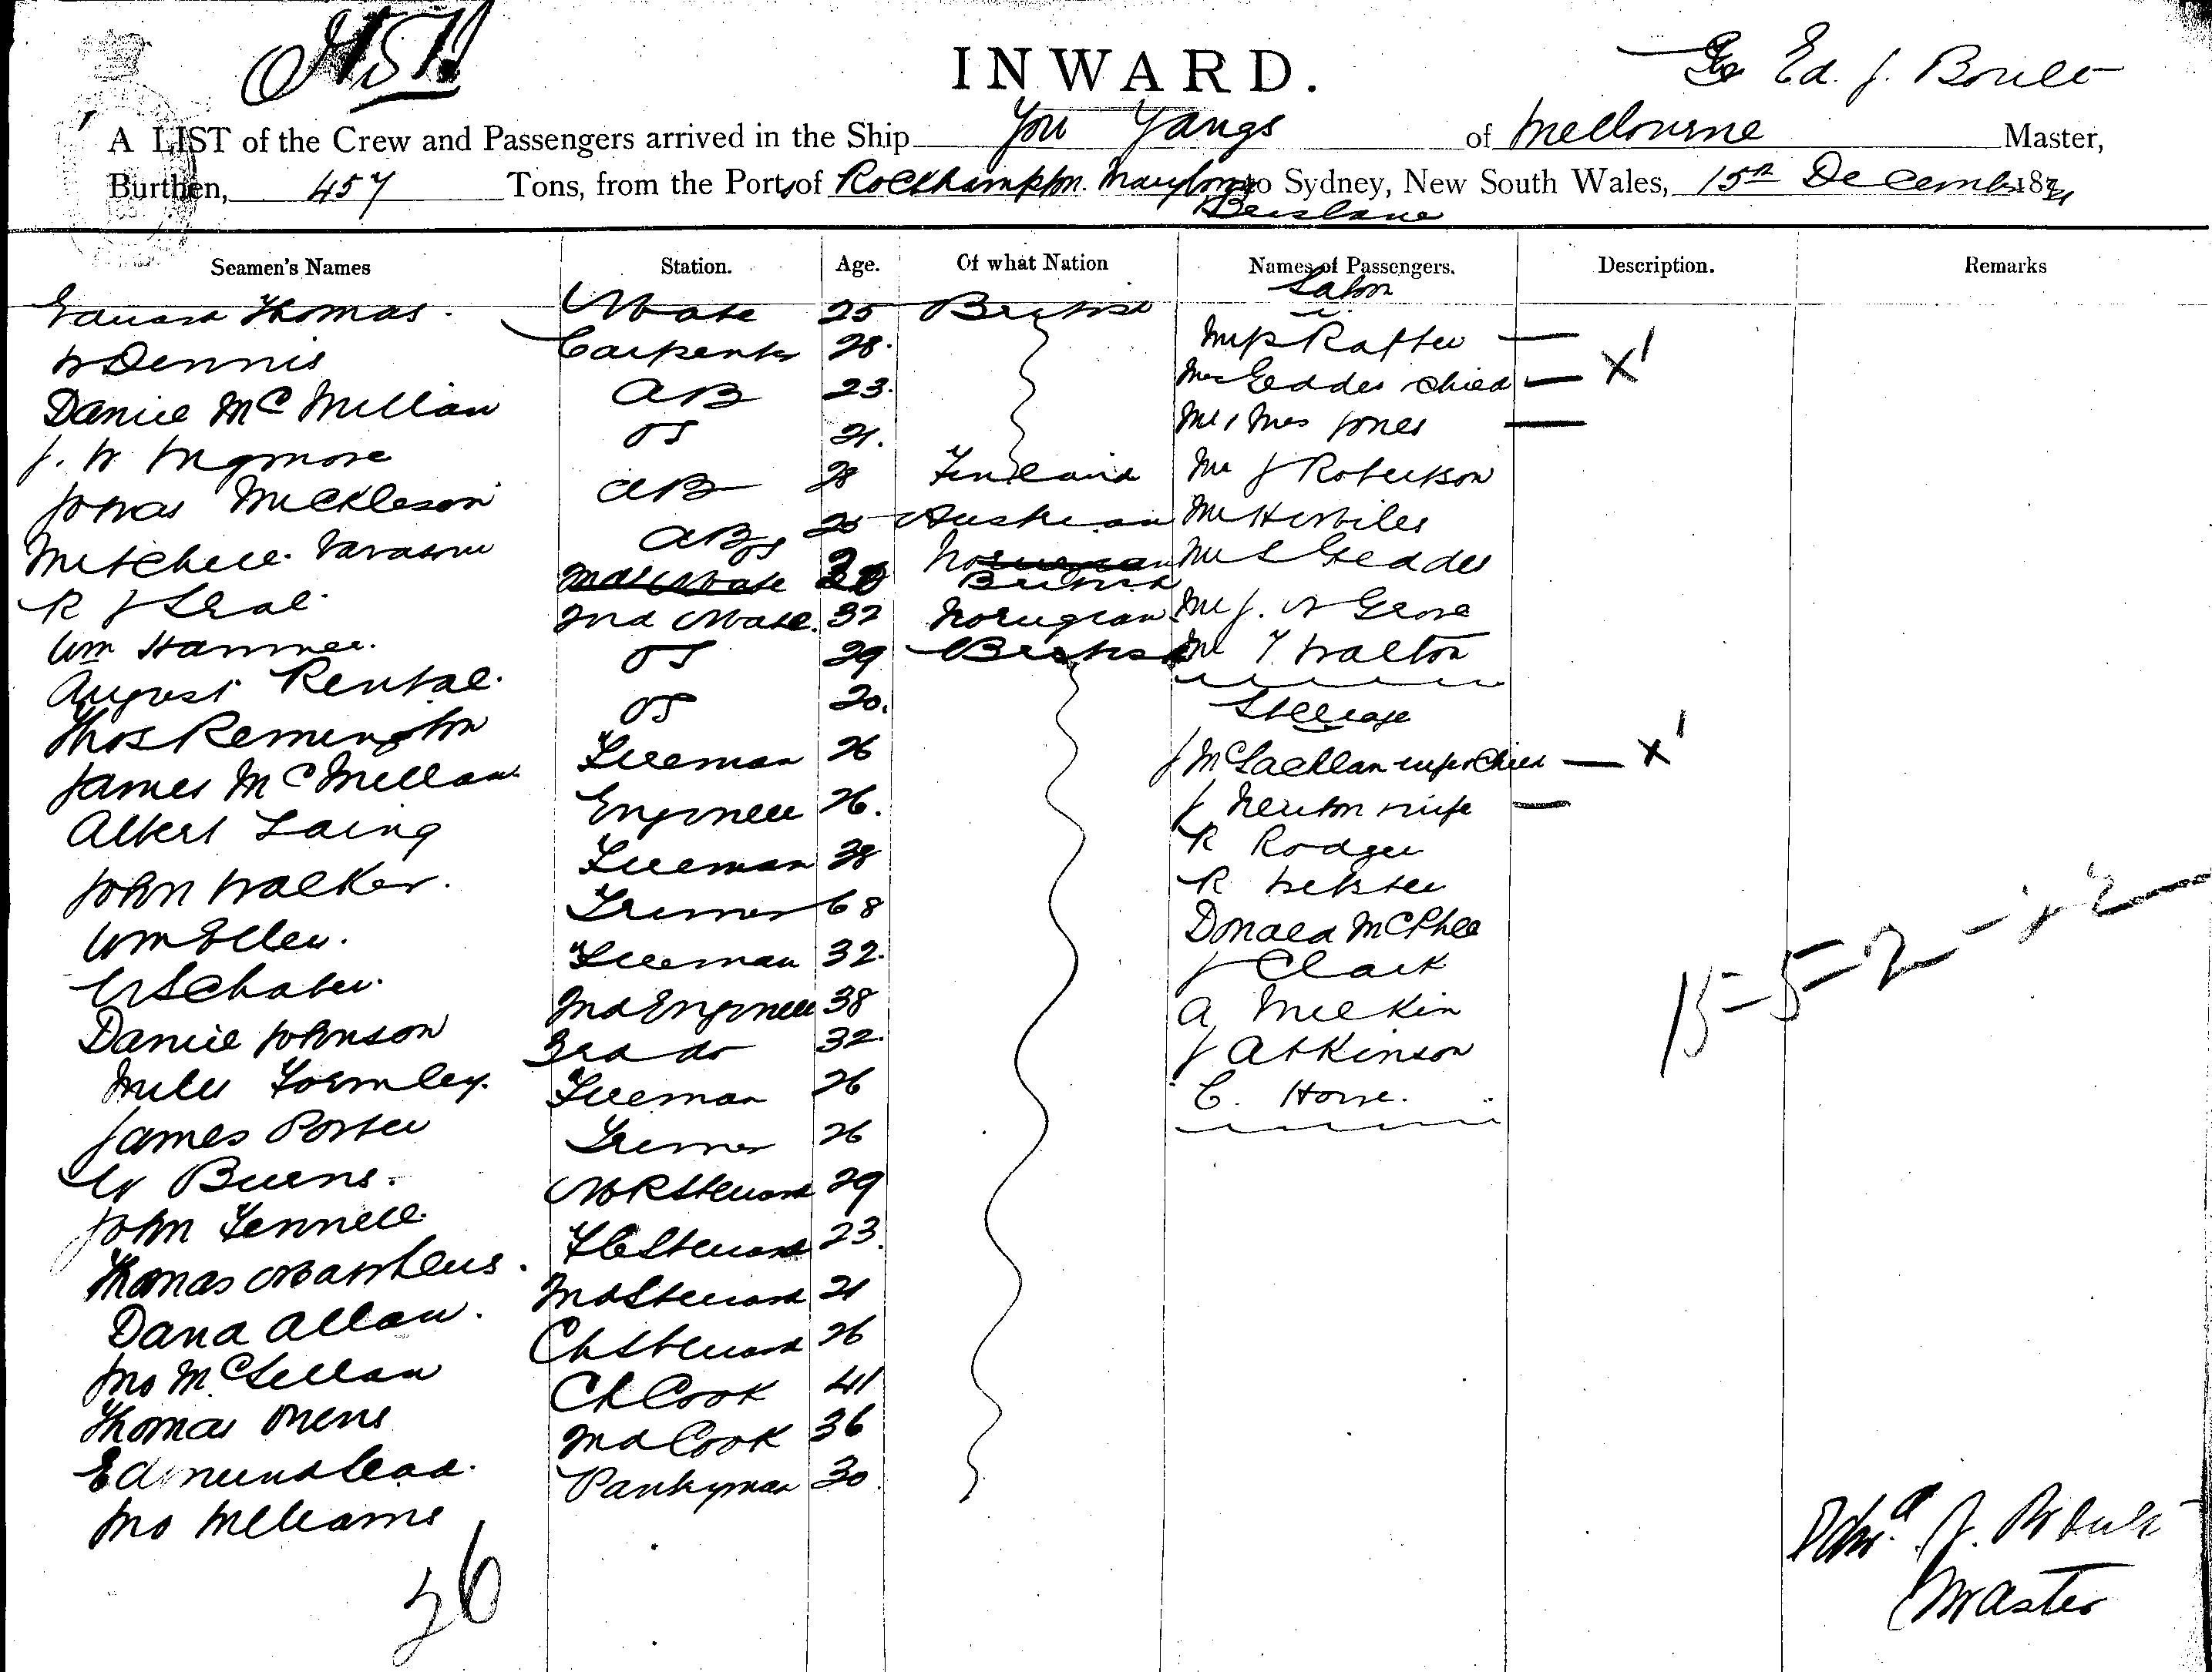 INWARD.
Ed. J. Boult
A LIST of the Crew and Passengers arrived in the Ship You Yangs of Melbourne Master,
Burthen, 457 Tons, from the Ports of Rockhampton. Maryboro to Sydney, New South Wales, 15th December 187
Brisbane
Seamen's Names Station. Age. Of what Nation Names of Passengers. Description. Remarks
Saloon
Edward Thomas. Mate 25 British
W Dennis Carpenter 28. Rafter —
Daniel McMillan AB 23. Mrs Geddes child — X 1
J. W OS 21. Mr & Mrs Jones —
Jonas Mickleson AB 28 Finland Mr J Robertson
Mitchell AB 25 Austrian Mr
R J OS 20 British Mr S Geddes
Wm Hammer. 2nd Mate. 32 Noregian Mr J. W Grove
August Rental. OS 29 British Mr T Walton
Thos Remington OS 20. Steerage
James McMillan Fireman 26 J McLachlan wife & child — X 1
Albert Laing Engineer 26. J Newton wife —
John Walker. Fireman 38 R Rodger
Wm Trimmer 68 R Webster
Fireman 32. Donald McPhee
Daniel Johnson 2nd Engineer 38 J Clark
Miles Formley. 3rd do 32. A
James Porter Fireman 26 J Atkinson
W Burns. Trimmer 26 C. Horne.
John Fennell. Steward 29
Thomas Matthews. F C Steward 23.
Dana Allan. 2nd Steward 21
Jno McLellan Ch Steward 26
Thomas Owens Ch Cook 41
Edmund 2nd Cook 36
Jno Williams Pantryman 30
15-5-2-
26
Edwd. J. Boult
Master